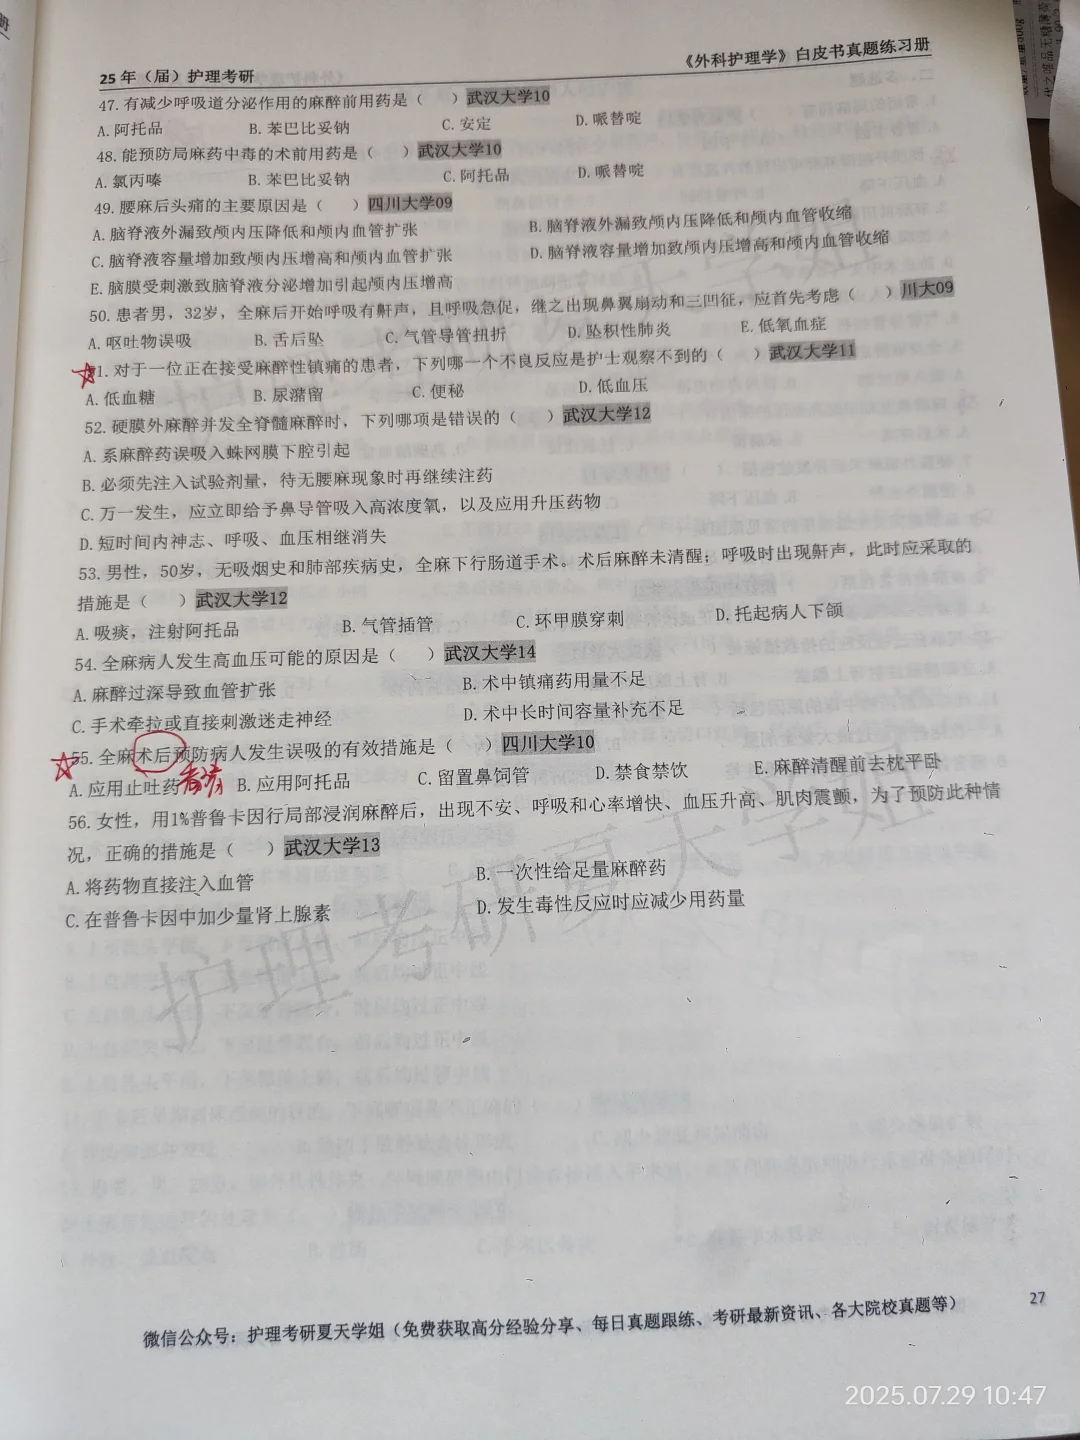 25年（届）护理考研
《外科护理学》白皮书真题练习册
47. 有减少呼吸道分泌作用的麻醉前用药是（　　）武汉大学10
A. 阿托品 B. 苯巴比妥钠 C. 安定 D. 哌替啶
48. 能预防局麻药中毒的术前用药是（　　）武汉大学10
A. 氯丙嗪 B. 苯巴比妥钠 C. 阿托品 D. 哌替啶
49. 腰麻后头痛的主要原因是（　　）四川大学09
A. 脑脊液外漏致颅内压降低和颅内血管扩张 B. 脑脊液外漏致颅内压降低和颅内血管收缩
C. 脑脊液容量增加致颅内压增高和颅内血管扩张 D. 脑脊液容量增加致颅内压增高和颅内血管收缩
E. 脑膜受刺激致脑脊液分泌增加引起颅内压增高
50. 患者男，32岁，全麻后开始呼吸有鼾声，且呼吸急促，继之出现鼻翼扇动和三凹征，应首先考虑（　　）川大09
A. 呕吐物误吸 B. 舌后坠 C. 气管导管扭折 D. 坠积性肺炎 E. 低氧血症
51. 对于一位正在接受麻醉性镇痛的患者，下列哪一个不良反应是护士观察不到的（　　）武汉大学11
A. 低血糖 B. 尿潴留 C. 便秘 D. 低血压
52. 硬膜外麻醉并发全脊髓麻醉时，下列哪项是错误的（　　）武汉大学12
A. 系麻醉药误吸入蛛网膜下腔引起
B. 必须先注入试验剂量，待无腰麻现象时再继续注药
C. 万一发生，应立即给予鼻导管吸入高浓度氧，以及应用升压药物
D. 短时间内神志、呼吸、血压相继消失
53. 男性，50岁，无吸烟史和肺部疾病史，全麻下行肠道手术。术后麻醉未清醒；呼吸时出现鼾声，此时应采取的
措施是（　　）武汉大学12
A. 吸痰，注射阿托品 B. 气管插管 C. 环甲膜穿刺 D. 托起病人下颌
54. 全麻病人发生高血压可能的原因是（　　）武汉大学14
A. 麻醉过深导致血管扩张 B. 术中镇痛药用量不足
C. 手术牵拉或直接刺激迷走神经 D. 术中长时间容量补充不足
55. 全麻术后预防病人发生误吸的有效措施是（　　）四川大学10
A. 应用止吐药 B. 应用阿托品 C. 留置鼻饲管 D. 禁食禁饮 E. 麻醉清醒前去枕平卧
56. 女性，用1%普鲁卡因行局部浸润麻醉后，出现不安、呼吸和心率增快、血压升高、肌肉震颤，为了预防此种情
况，正确的措施是（　　）武汉大学13
A. 将药物直接注入血管 B. 一次性给足量麻醉药
C. 在普鲁卡因中加少量肾上腺素 D. 发生毒性反应时应减少用药量
护理考研夏天学姐
27
微信公众号：护理考研夏天学姐（免费获取高分经验分享、每日真题跟练、考研最新资讯、各大院校真题等）
2025.07.29 10:47